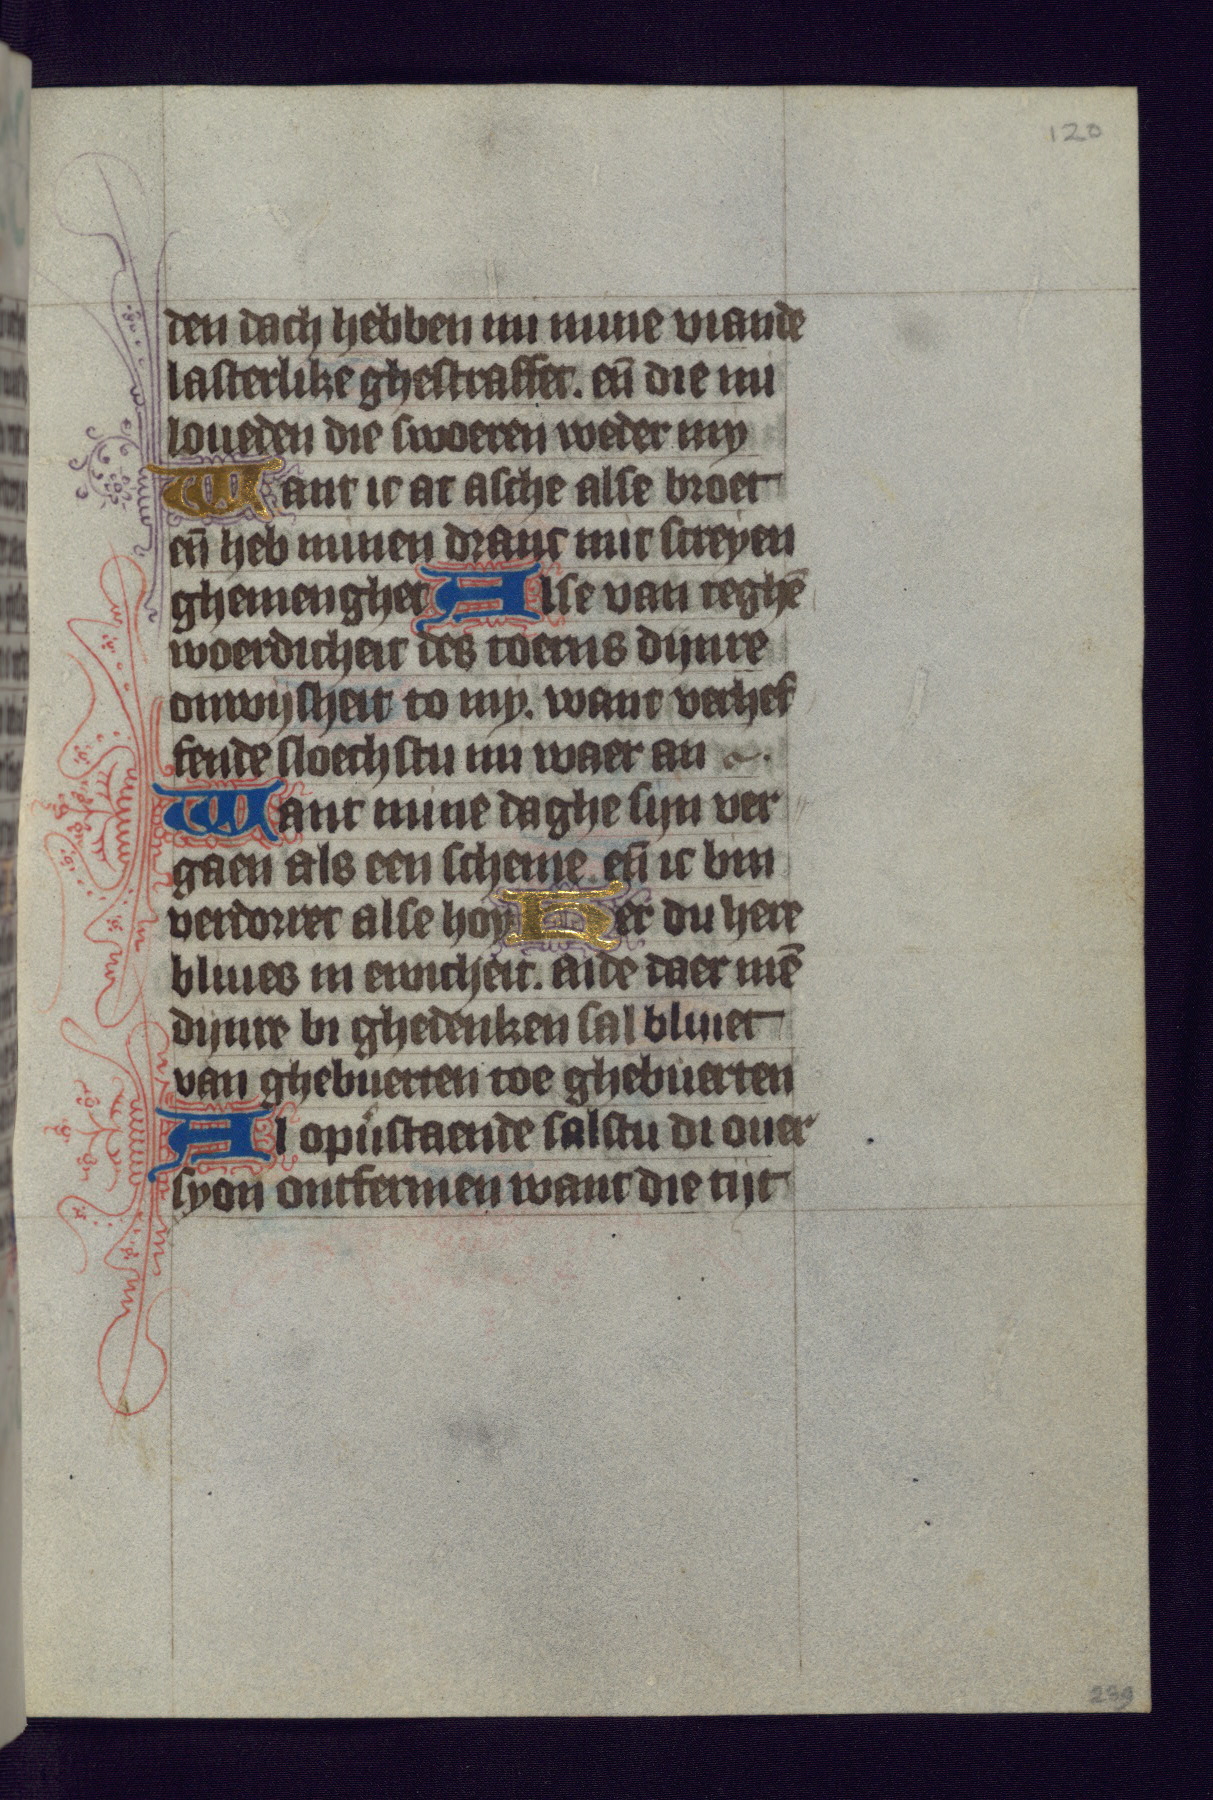 120
den dach hebben mi mine viande
lasterlike ghestraffet. eñ die mi
loueden die swoeren weder my
Want ic at asche alse broet
eñ heb minen dranc mit screyen
ghemenghet Alse van teghē
woerdicheit des toerns dijnre
onwijsheit to my. want verhef
fende sloechstu mi waer an
Want mine daghe sijn ver
gaen als een scheme. eñ ic bin
verdorret alse hoy Her du here
bliues in ewicheit. ande daer mē
dijnre bi ghedenken sal bliuet
van ghebuerten toe ghebuerten
Al opstaende salstu di ouer
syon ontfermen want die tijt
239